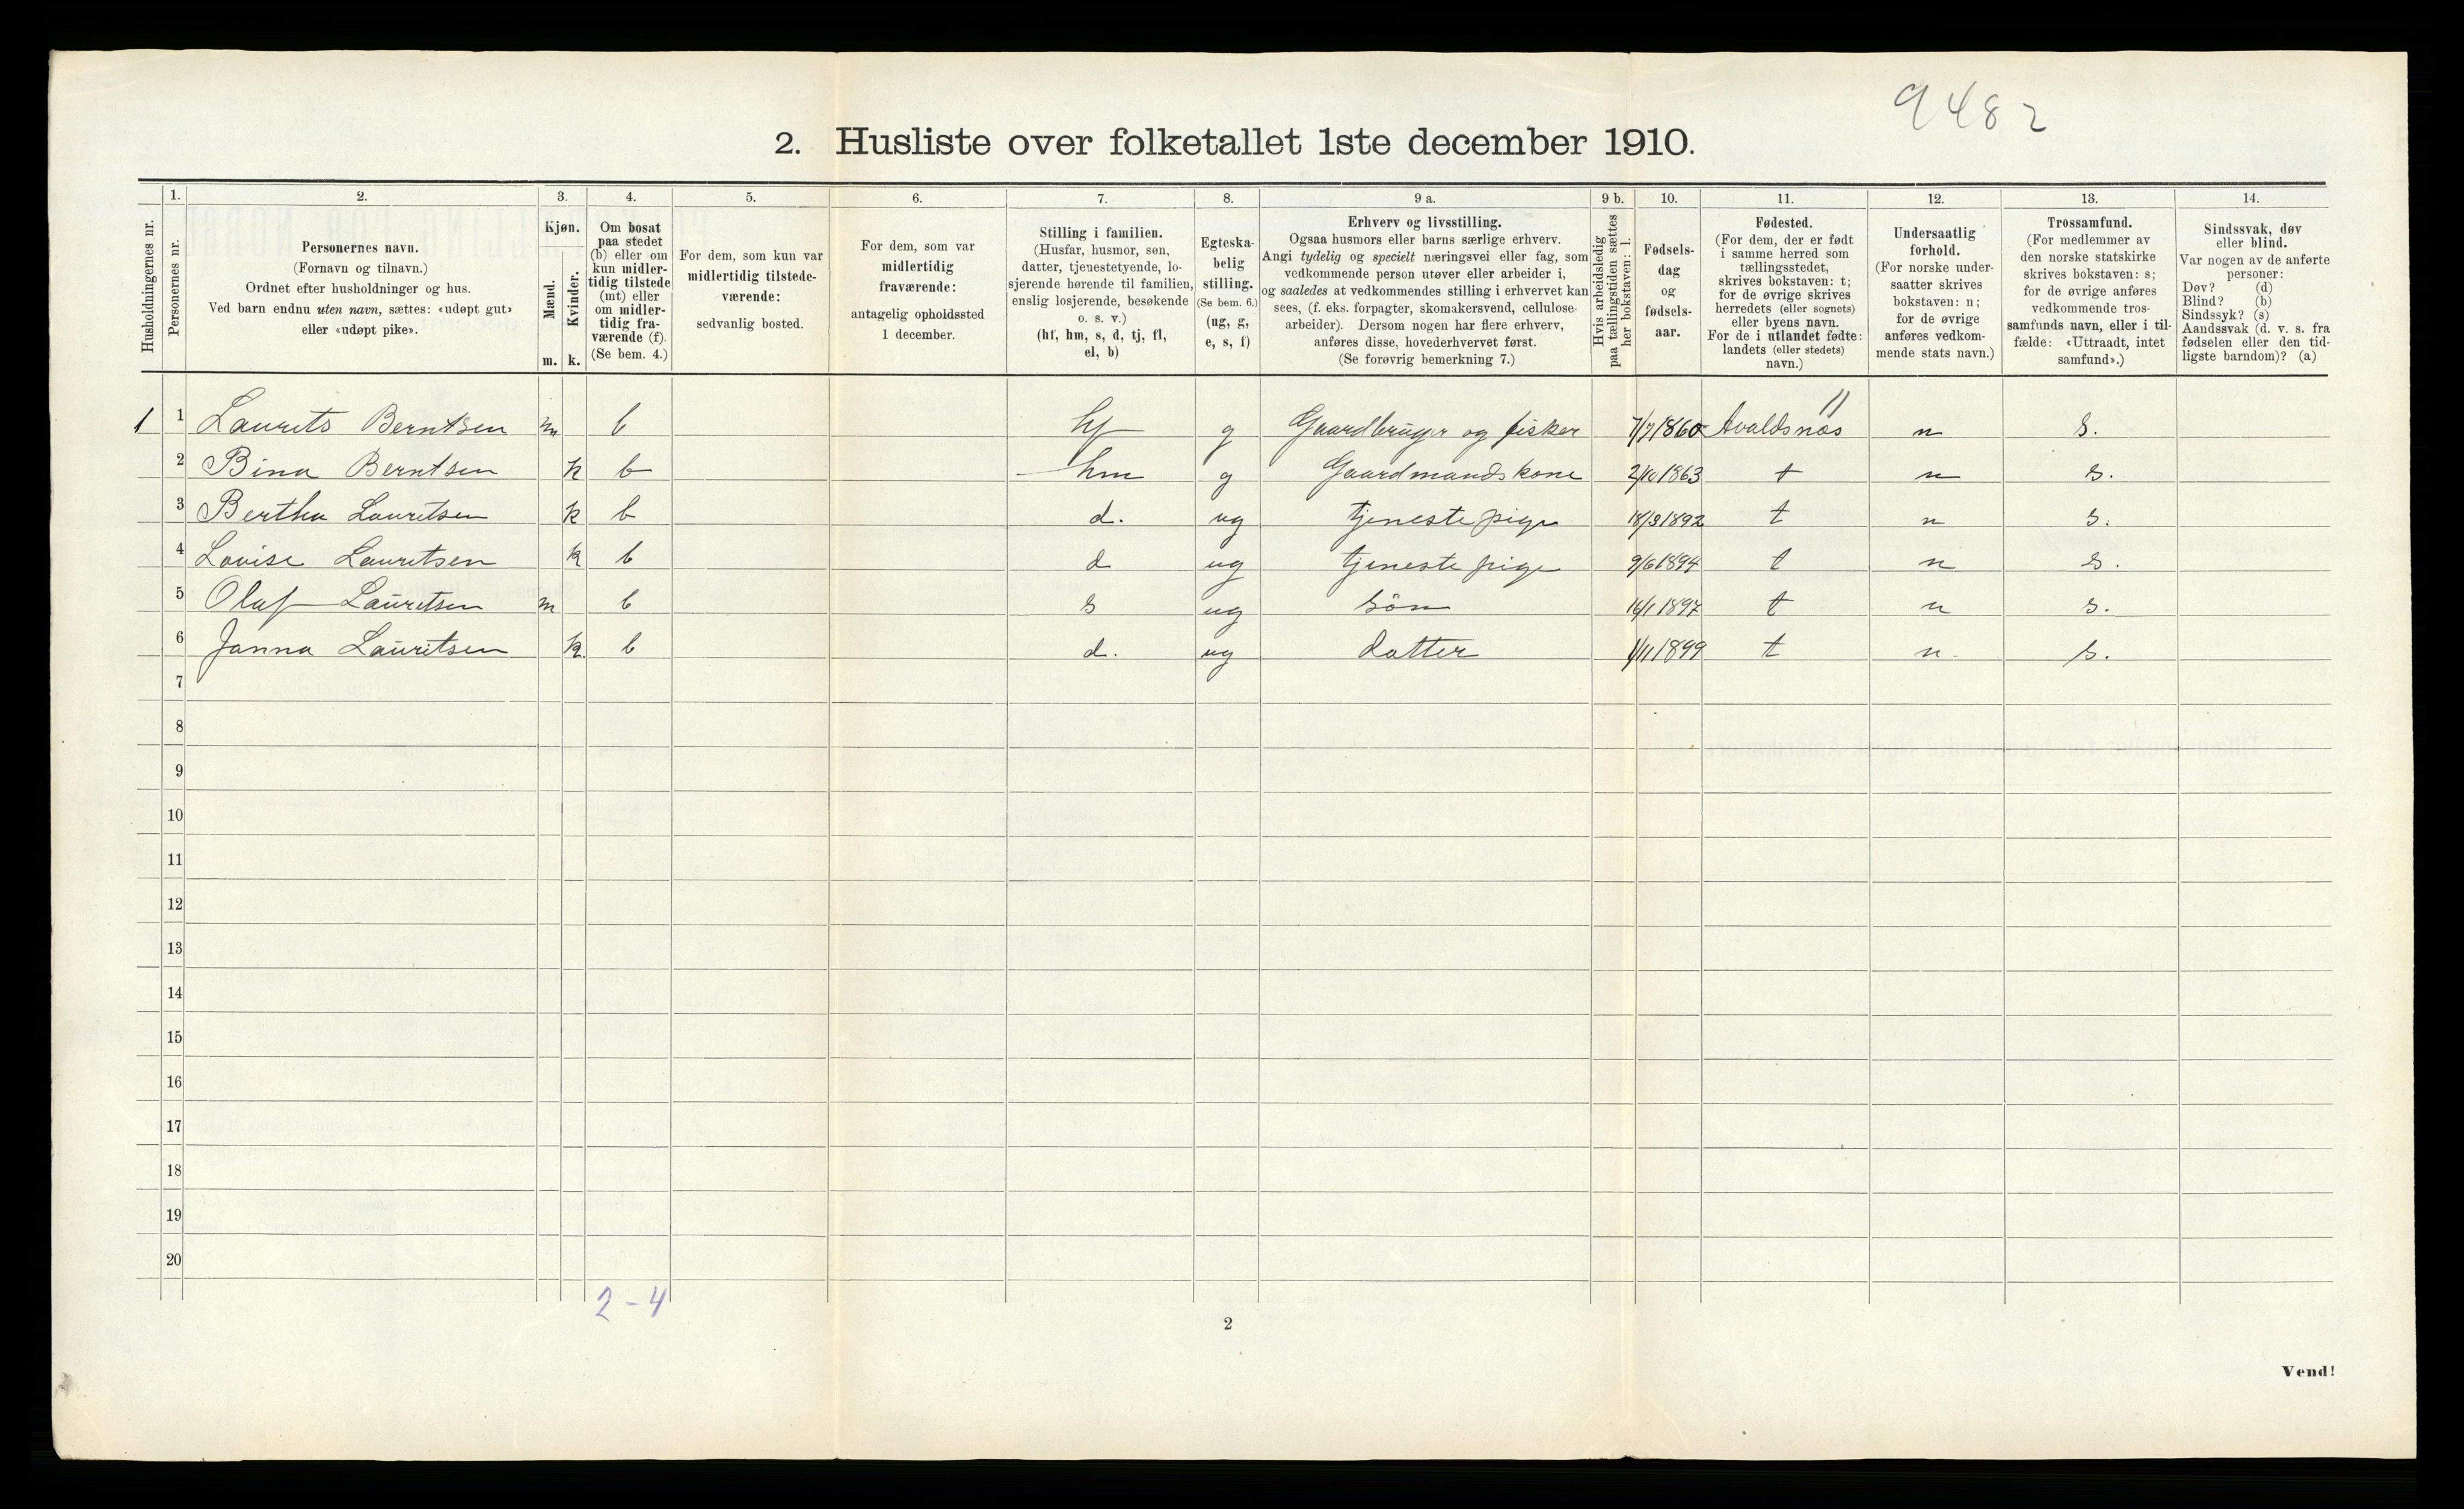 9482
2. Husliste over folketallet 1ste december 1910.
Husholdningernes nr.
1.
Personernes nr.
2.
Personernes navn.
(Fornavn og tilnavn.)
Ordnet efter husholdninger og hus.
Ved barn endnu uten navn, sættes: «udøpt gut»
eller «udøpt pike».
3.
Kjøn.
Mænd.
m.
Kvinder.
k.
4.
Om bosat
paa stedet
(b) eller om
kun midler-
tidig tilstede
(mt) eller
om midler-
tidig fra-
værende (f).
(Se bem. 4.)
5.
For dem, som kun var
midlertidig tilstede-
værende:
sedvanlig bosted.
6.
For dem, som var
midlertidig
fraværende:
antagelig opholdssted
1 december.
7.
Stilling i familien.
(Husfar, husmor, søn,
datter, tjenestetyende, lo-
sjerende hørende til familien,
enslig losjerende, besøkende
o. s. v.)
(hf, hm, s, d, tj, fl,
el, b)
8.
Egteska-
belig
stilling.
(Se bem. 6.)
(ug, g,
e, s, f)
9 a.
Erhverv og livsstilling.
Ogsaa husmors eller barns særlige erhverv.
Angi tydelig og specielt næringsvei eller fag, som
vedkommende person utøver eller arbeider i,
og saaledes at vedkommendes stilling i erhvervet kan
sees, (f. eks. forpagter, skomakersvend, cellulose-
arbeider). Dersom nogen har flere erhverv,
anføres disse, hovederhvervet først.
(Se forøvrig bemerkning 7.)
9 b.
Hvis arbeidsledig
paa tællingstiden sættes
her bokstaven: l.
10.
Fødsels-
dag
og
fødsels-
aar.
11.
Fødested.
(For dem, der er født
i samme herred som
tællingsstedet,
skrives bokstaven: t;
for de øvrige skrives
herredets (eller sognets)
eller byens navn.
For de i utlandet fødte:
landets (eller stedets)
navn.)
12.
Undersaatlig
forhold.
(For norske under-
saatter skrives
bokstaven: n;
for de øvrige
anføres vedkom-
mende stats navn.)
13.
Trossamfund.
(For medlemmer av
den norske statskirke
skrives bokstaven: s;
for de øvrige anføres
vedkommende tros-
samfunds navn, eller i til-
fælde: «Uttraadt, intet
samfund».)
14.
Sindssvak, døv
eller blind.
Var nogen av de anførte
personer:
Døv? (d)
Blind? (b)
Sindssyk? (s)
Aandssvak (d. v. s. fra
fødselen eller den tid-
ligste barndom)? (a)
11
1 1 Laurits Berntsen m b hf g Gaardbruger og fisker 1860 Avaldsnæs n s.
2 Bina Berntsen k b hm g Gaardmandskone 2/10 1863 t n s.
3 Bertha Lauritsen k b d. ug tjenestepige 18/3 1892 t n s.
4 Lovise Lauritsen k b d ug tjenestepige 9/6 1894 t n s.
5 Olaf Lauritsen m b s ug søn 1897 t n s.
6 Janna Lauritsen k b d. ug datter 1/11 1899 t n. s.
7
8
9
10
11
12
13
14
15
16
17
18
19
20
2-4
2
Vend!